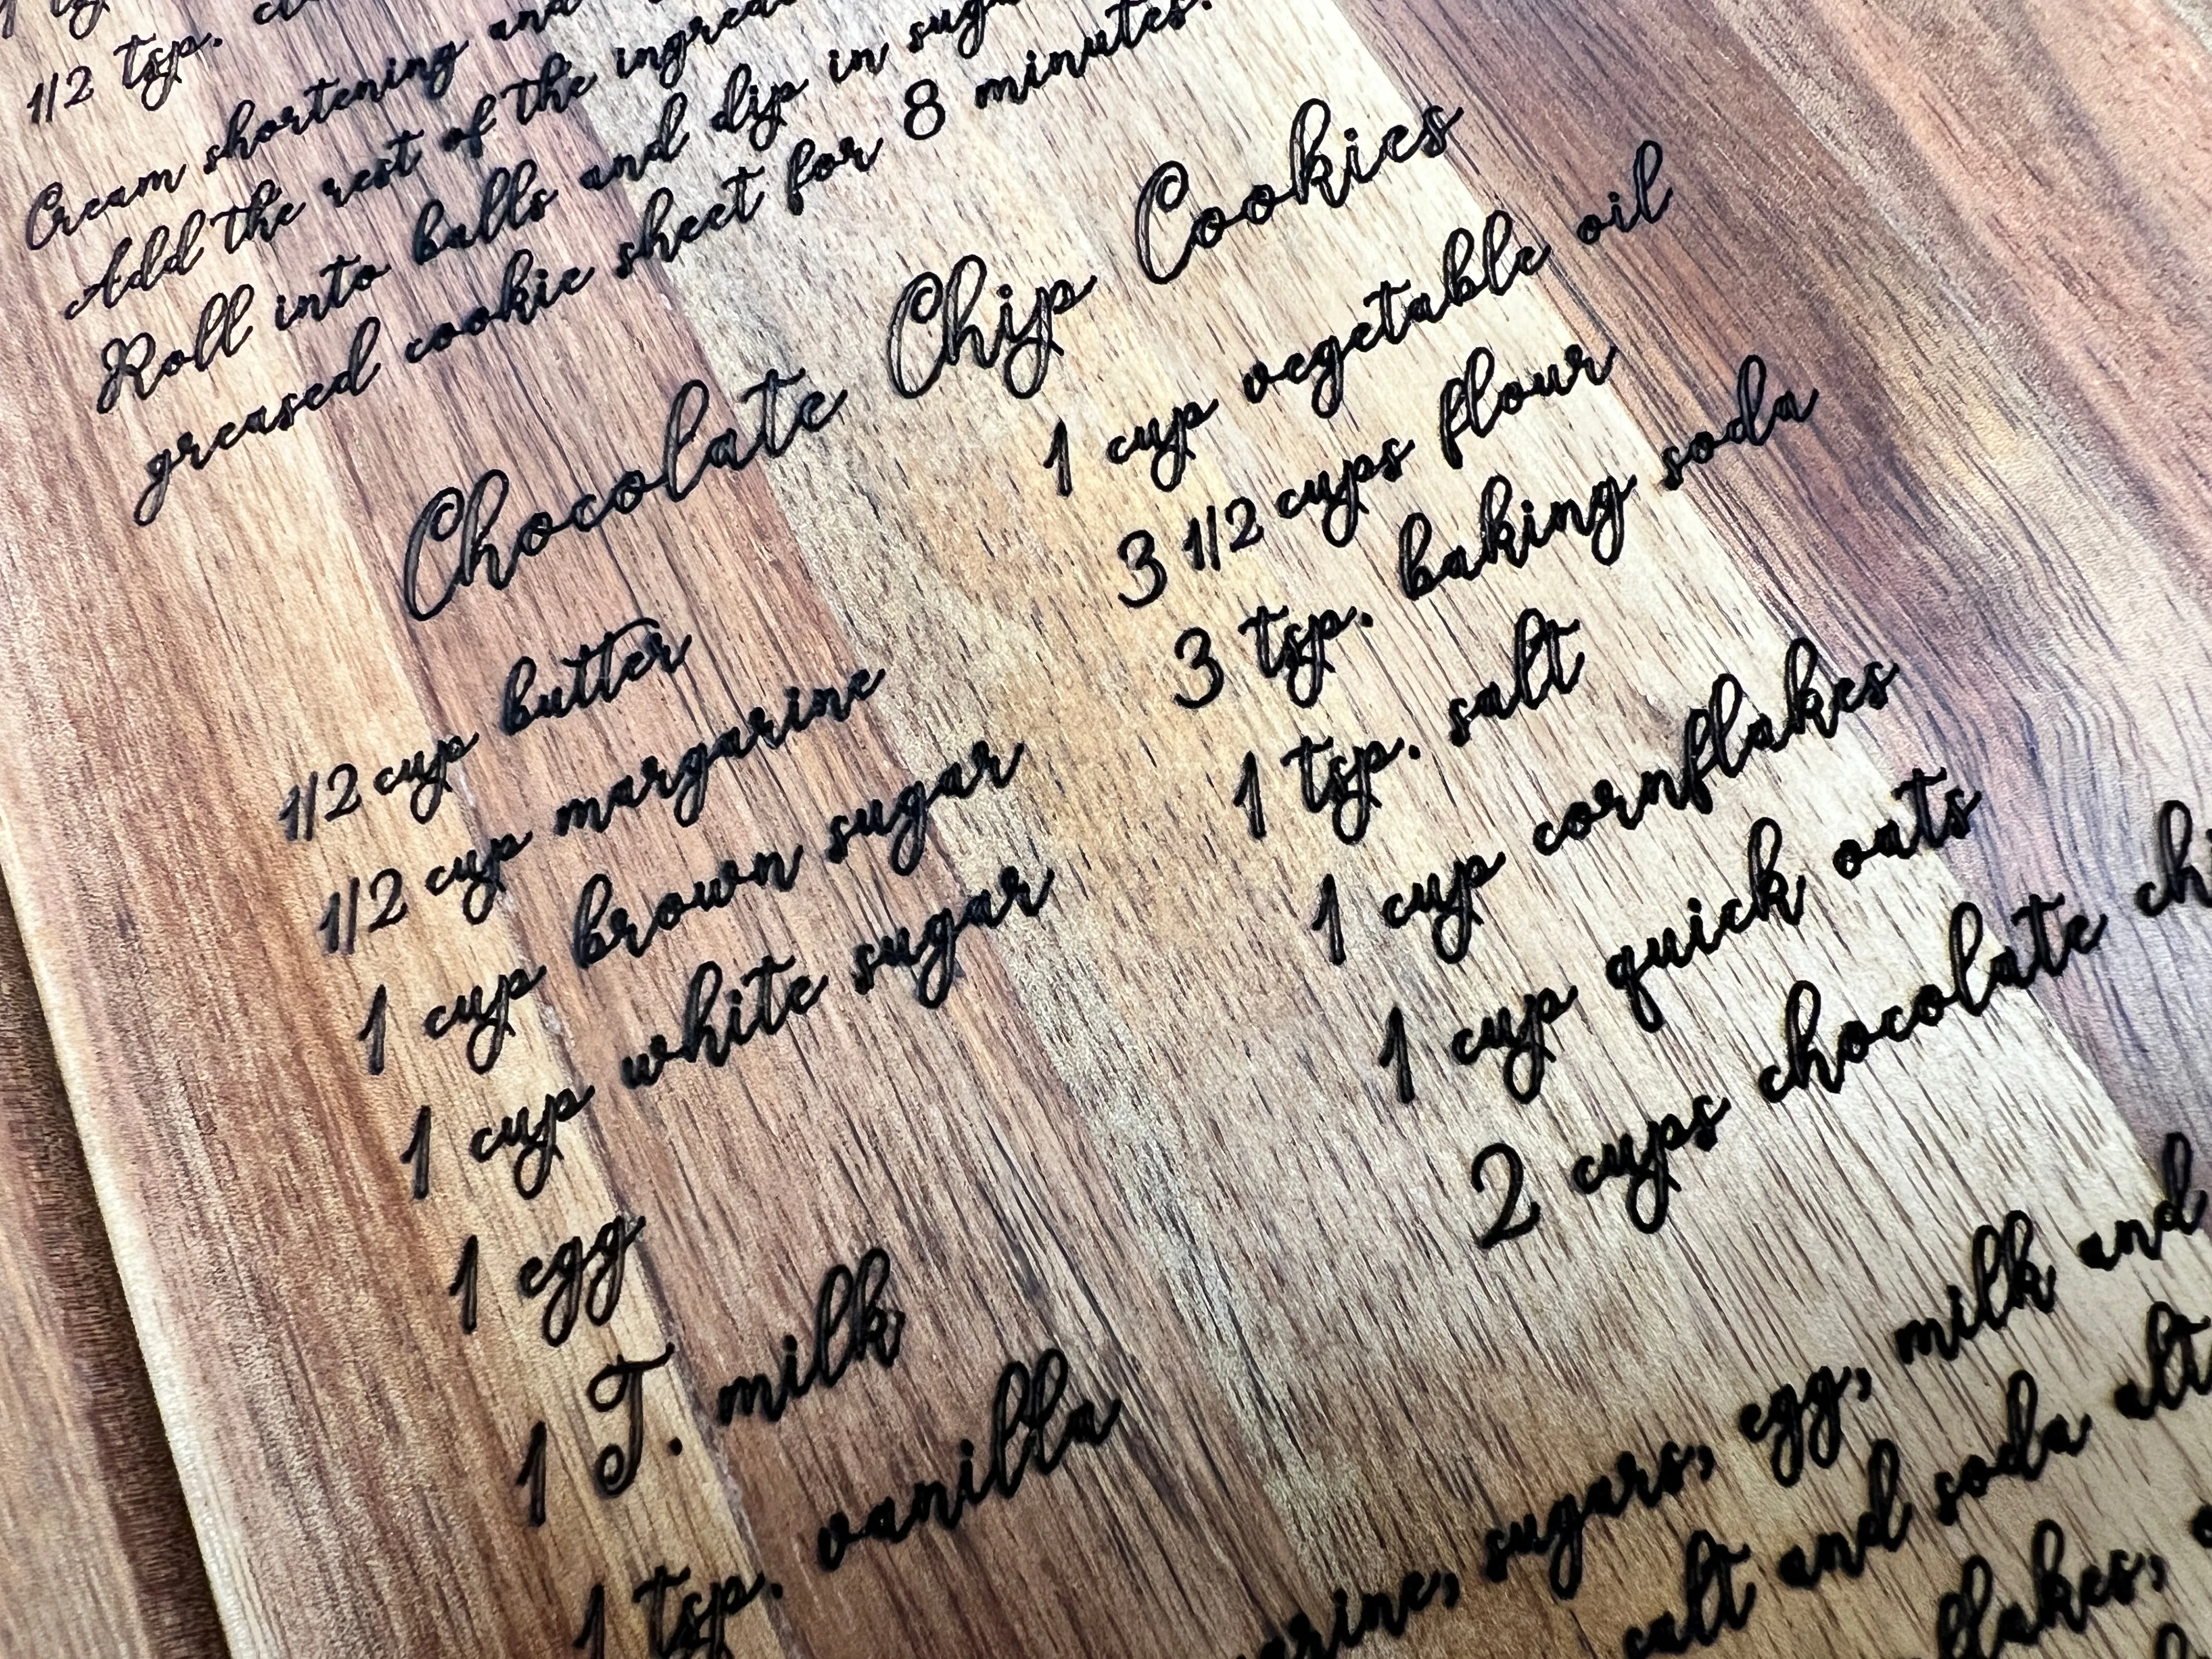 1/2 tsp.
Cream shortening and
Add the rest of the
Roll into balls and dip in
greased cookie sheet for 8 minutes.
Chocolate Chip Cookies
1/2 cup butter
1/2 cup margarine
1 cup brown sugar
1 cup white sugar
1 egg
1 T. milk
1 tsp. vanilla
1 cup vegetable oil
3 1/2 cups flour
3 tsp. baking soda
1 tsp. salt
1 cup cornflakes
1 cup quick oats
2 cups chocolate
sugars, egg, milk and
salt and soda